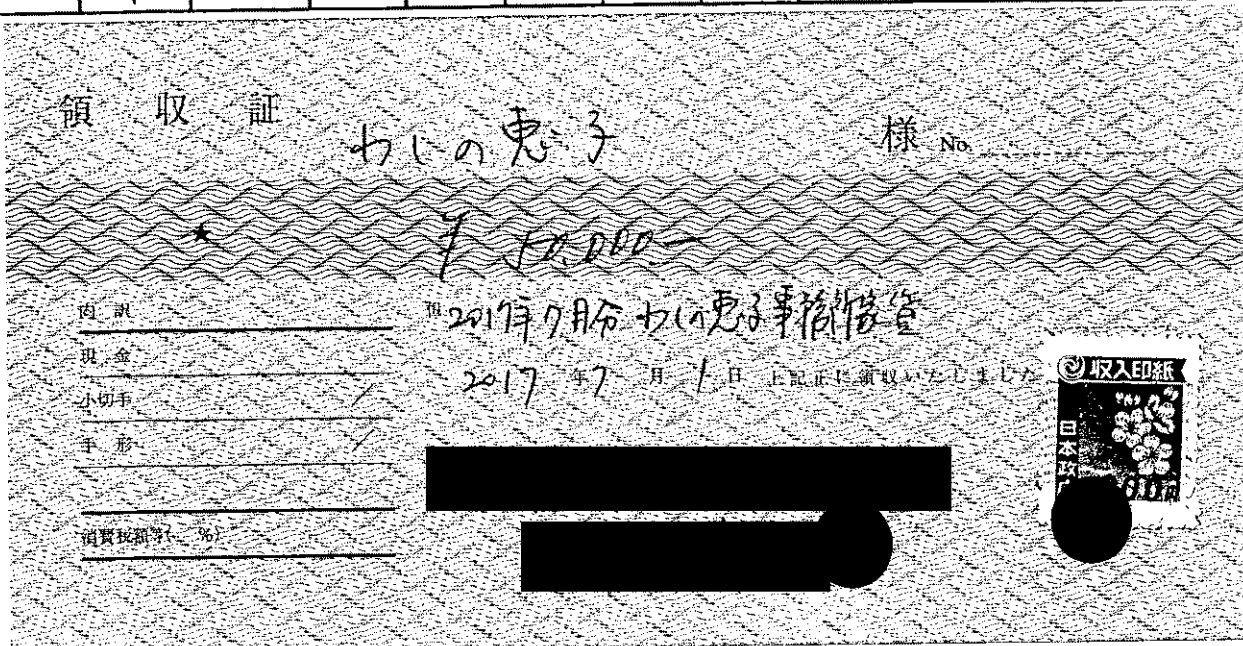 領収証
わしの恵子 様 No.
★ ¥50,000ー
内訳
但 2017年7月分 わしの恵子事務所家賃
現金
2017年7月1日 上記正に領収いたしました
小切手
手形
消費税額等( %)
収入印紙
日本政